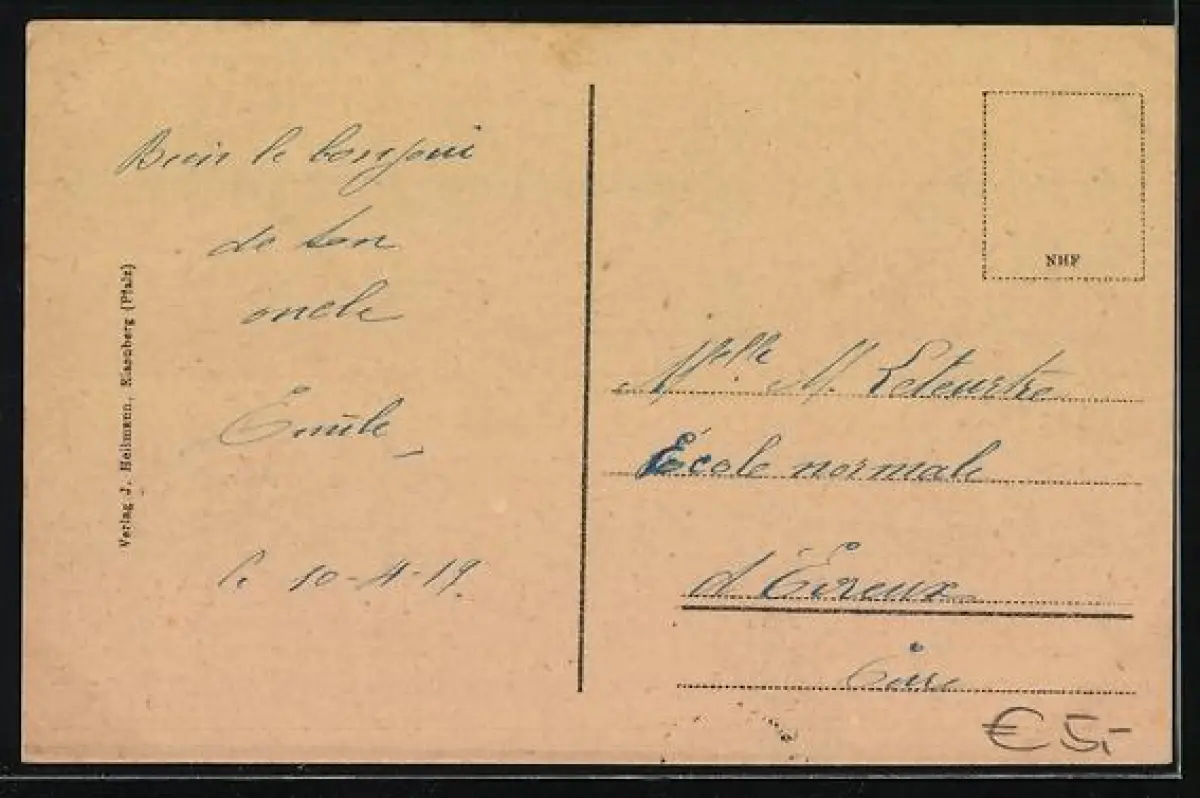 Bien le bonjour
de ton
oncle
Emile
le 10-4-19.
Verlag J. Heilmann, Eisenberg (Pfalz)
NHF
Melle M. Leteurtre
École normale
d'Évreux
Eure
€ 5,-